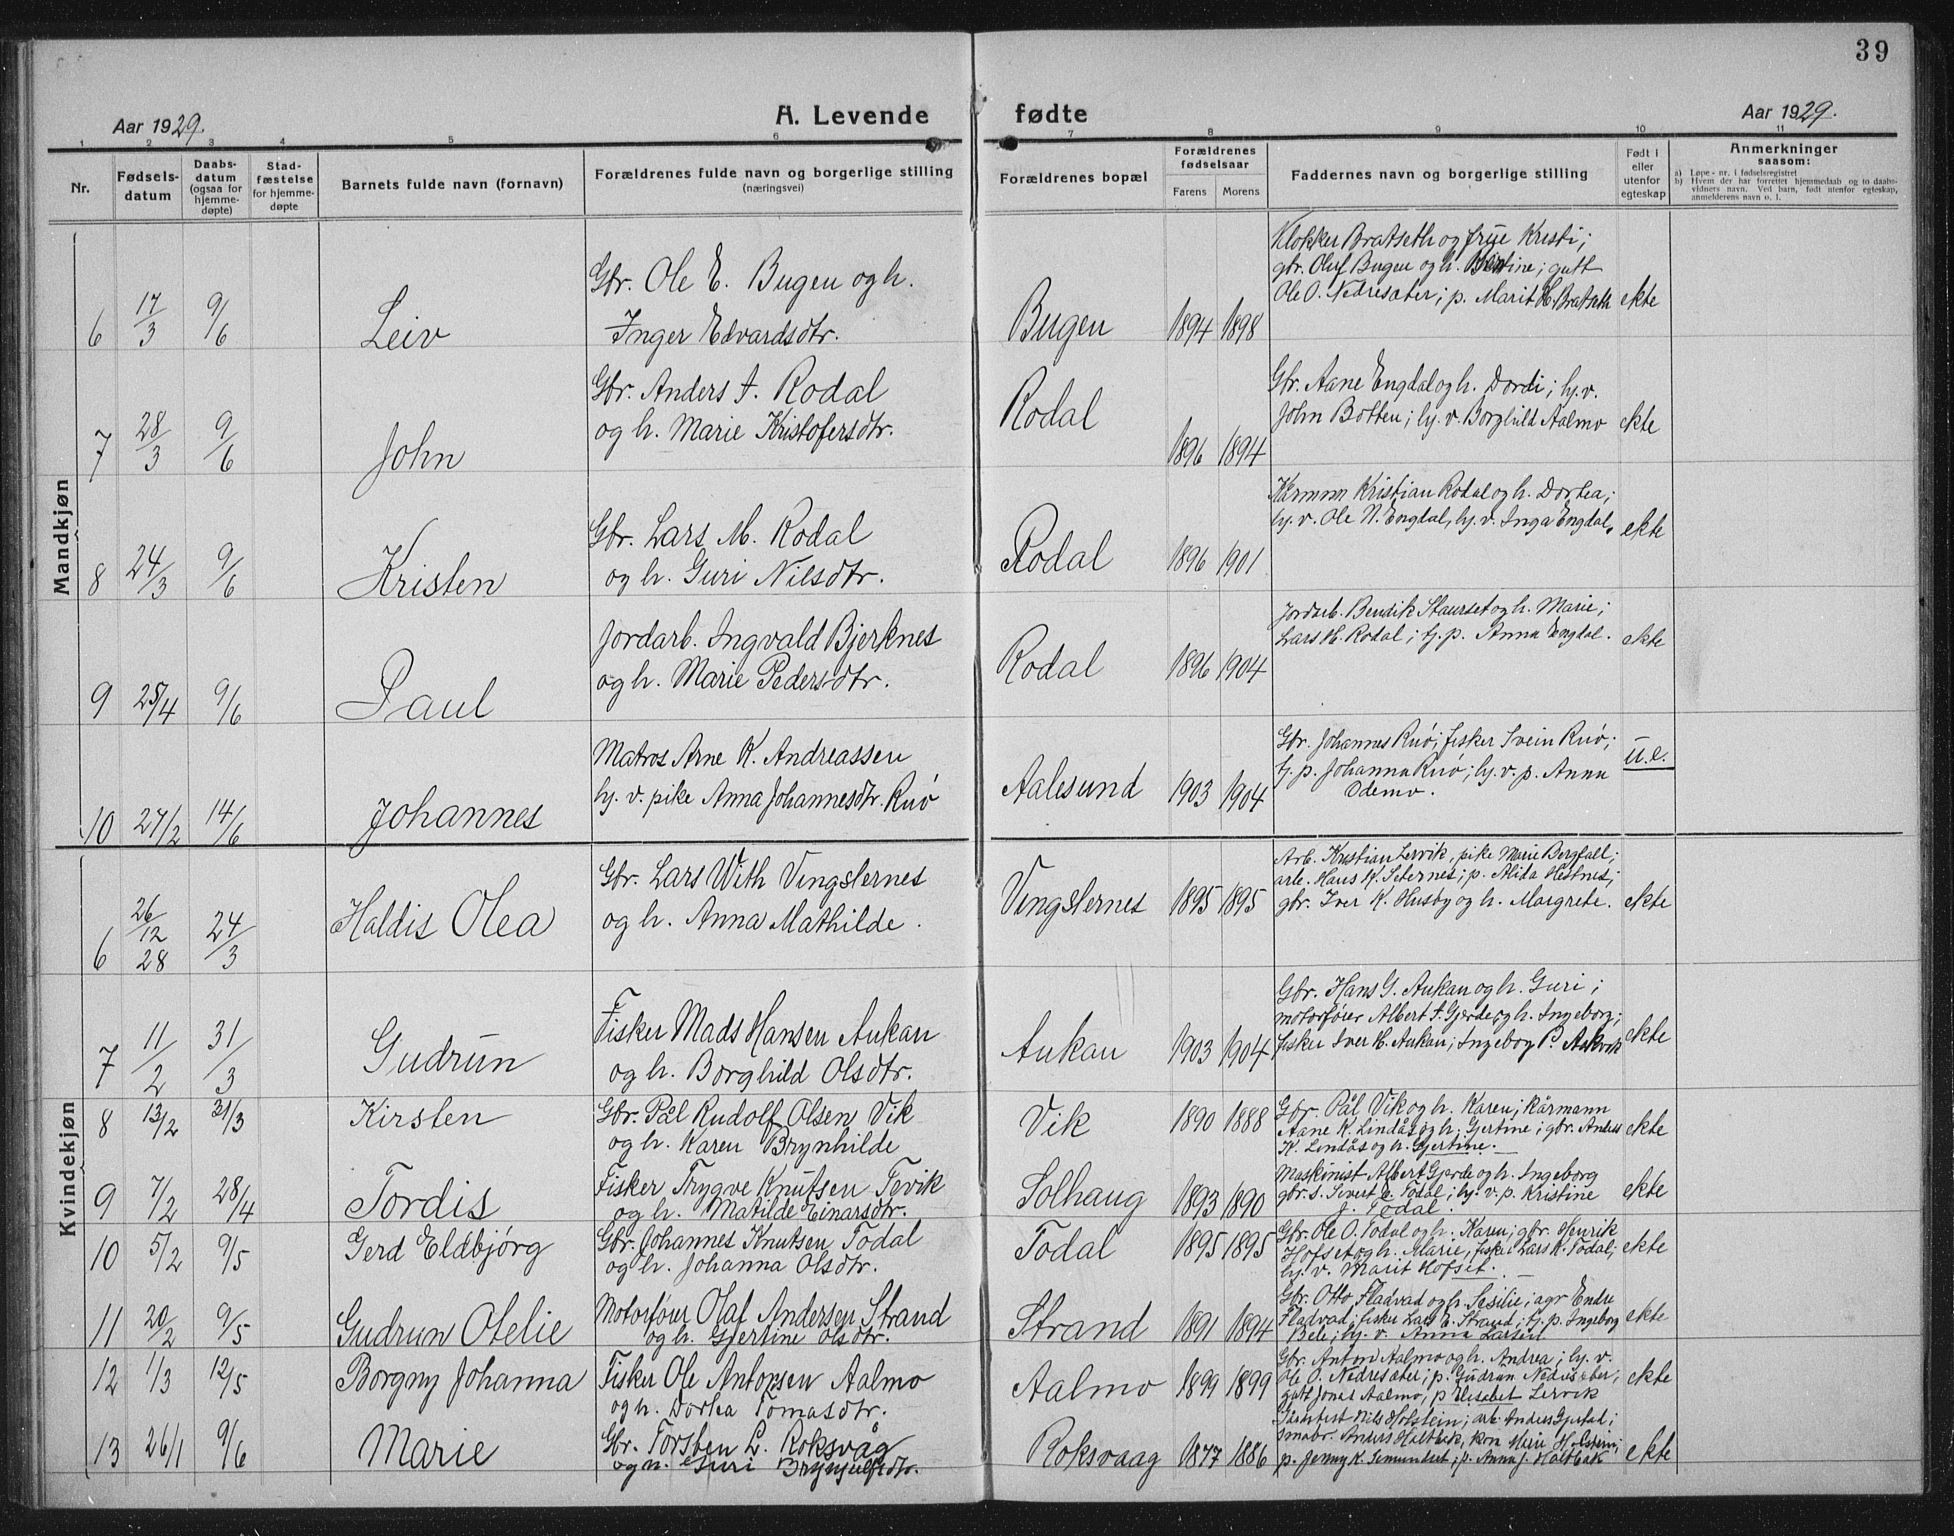 39
Aar 1929.
A. Levende fødte
Aar 1929.
1 2 3 4 5 6 7 8 9 10 11
Nr.
Fødsels-
datum
Daabs-
datum
(ogsaa for
hjemme-
døpte)
Stad-
fæstelse
for hjemme-
døpte
Barnets fulde navn (fornavn)
Forældrenes fulde navn og borgerlige stilling
(næringsvei)
Forældrenes bopæl
Forældrenes
fødselsaar
Farens Morens
Faddernes navn og borgerlige stilling
Født i
eller
utenfor
egteskap
Anmerkninger
saasom:
a) Løpe-nr. i fødselsregistret
b) Hvem der har forrettet hjemmedaab og to daabs-
vidners navn. Ved barn, født utenfor egteskap,
anmelderens navn o. l.
Mandkjøn
6 17/3 9/6 Leiv
Gbr. Ole E. Bugen og h.
Inger Edvardsdtr.
Bugen 1894 1898
Klokker Bratseth og frue Kristi;
gbr. Oluf Bugen og h. ; gutt
Ole O. Nedresæter; p. Marit H. Bratseth
ekte
7 28/3 9/6 John
Gbr. Anders J. Rodal
og h. Marie Kristofersdtr.
Rodal 1896 1894
Gbr. Aane Engdal og h. Dordi; hj. v.
John Botten; hj. v. Borghild Aalmo
ekte
8 24/3 9/6 Kristen
Gbr. Lars M. Rodal
og h. Guri Nilsdtr.
Rodal 1896 1901
Kårmann Kristian Rodal og h. Dortea;
hj. v. Ole N. Engdal, hj. v. Inga Engdal.
ekte
9 25/4 9/6 Paul
Jordarb. Ingvald Bjerknes
og h. Marie Pedersdtr.
Rodal 1896 1904
Jordarb. Bendik Staurset og h. Marie;
Lars M. Rodal; tj. p. Anna Engdal.
ekte
10 27/2 14/6 Johannes
Matros Arne K. Andreassen
hj. v. pike Anna Johannesdtr. Ruø
Aalesund 1903 1904
Gbr. Johannes Ruø; fisker Svein Ruø;
tj. p. Johanna Ruø; hj. v. p. Anna
Odemo.
u.e.
Kvindekjøn
6 26/12 28 24/3 Haldis Olea
Gbr. Lars With Vingsternes
og h. Anna Mathilde.
Vingsternes 1895 1895
Arb. Kristian Lervik, pike Marie Bergfall;
arb. Hans K. Seternes; p. Alida Hestnes;
gbr. Iver K. Husby og h. Margrete.
ekte
7 11/2 31/3 Gudrun
Fisker Mads Hansen Aukan
og h. Borghild Olsdtr.
Aukan 1903 1904
Gbr. Hans G. Aukan og h. Guri;
motorfører Albert S. Gjerde og h. Ingeborg;
fisker Iver H. Aukan; Ingeborg P. Askvik
ekte
8 13/2 31/3 Kirsten
Gbr. Pål Rudolf Olsen Vik
og h. Karen Brynhilde
Vik 1890 1888
Gbr. Pål Vik og h. Karen; kårmann
Aane K. Lindås og h. Gjertine; gbr. Anders
K. Lindås og h. Gjertine.
ekte
9 7/2 28/4 Tordis
Fisker Trygve Knutsen Tevik
og h. Matilde Einarsdtr.
Solhaug 1893 1890
Maskinist Albert Gjerde og h. Ingeborg
gbr. s. Sivert E. Todal; hj. v. p. Kristine
J. Todal.
ekte
10 5/2 9/5 Gerd Eldbjørg
Gbr. Johannes Knutsen Todal
og h. Johanna Olsdtr.
Todal 1895 1895
Gbr. Ole O. Todal og h. Karen; gbr. Henrik
Hofset og h. Marie, fisker Lars K. Todal;
hj. v. Marit Hofset.
ekte
11 20/2 9/5 Gudrun Otelie
Motorfører Olaf Andersen Strand
og h. Gjertine Olsdtr.
Strand 1891 1894
Gbr. Otto Fladvad og h. Sesilie; agr. Endre
Fladvad; fisker Lars E. Strand; tj. p. Ingeborg
Bele; hj. v. Anna Larsen
ekte
12 1/3 12/5 Borgny Johanna
Fisker Ole Antonsen Aalmo
og h. Dortea Tomasdtr.
Aalmo 1899 1899
Gbr. Anton Aalmo og h. Andrea; hj. v.
Ole O. Nedresæter; p. Gudrun Nedresæter;
gutt Jonas Aalmo, p. Elisabet Lervik
ekte
13 26/1 9/6 Marie
Gbr. Torsten L. Roksvåg
og h. Guri Brynjulfsdtr.
Roksvaag 1877 1886
Nils Holstein; arb. Anders Gjestad;
småbr. Anders Haltbak, kon Marie Holstein;
p. Jenny K. Semundset; p. Anna J. Haltbak
ekte